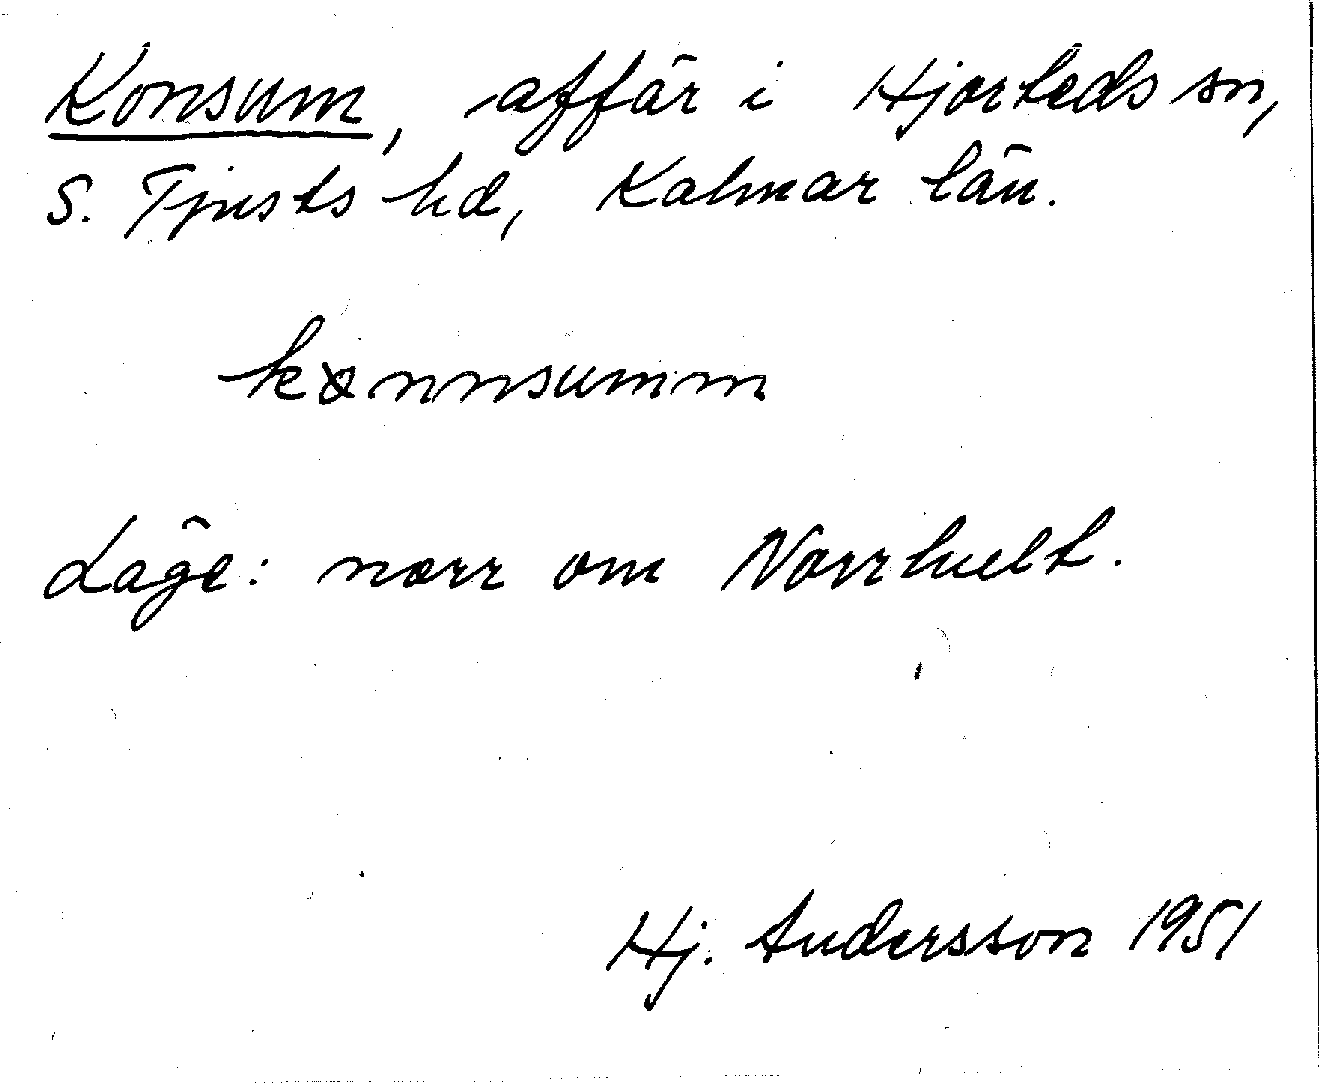 Konsum, affär i Hjorteds sn,
S. Tjusts hd, Kalmar län.
kɷnnsumm
Läge: norr om Norrhult.
Hj. Andersson 1951